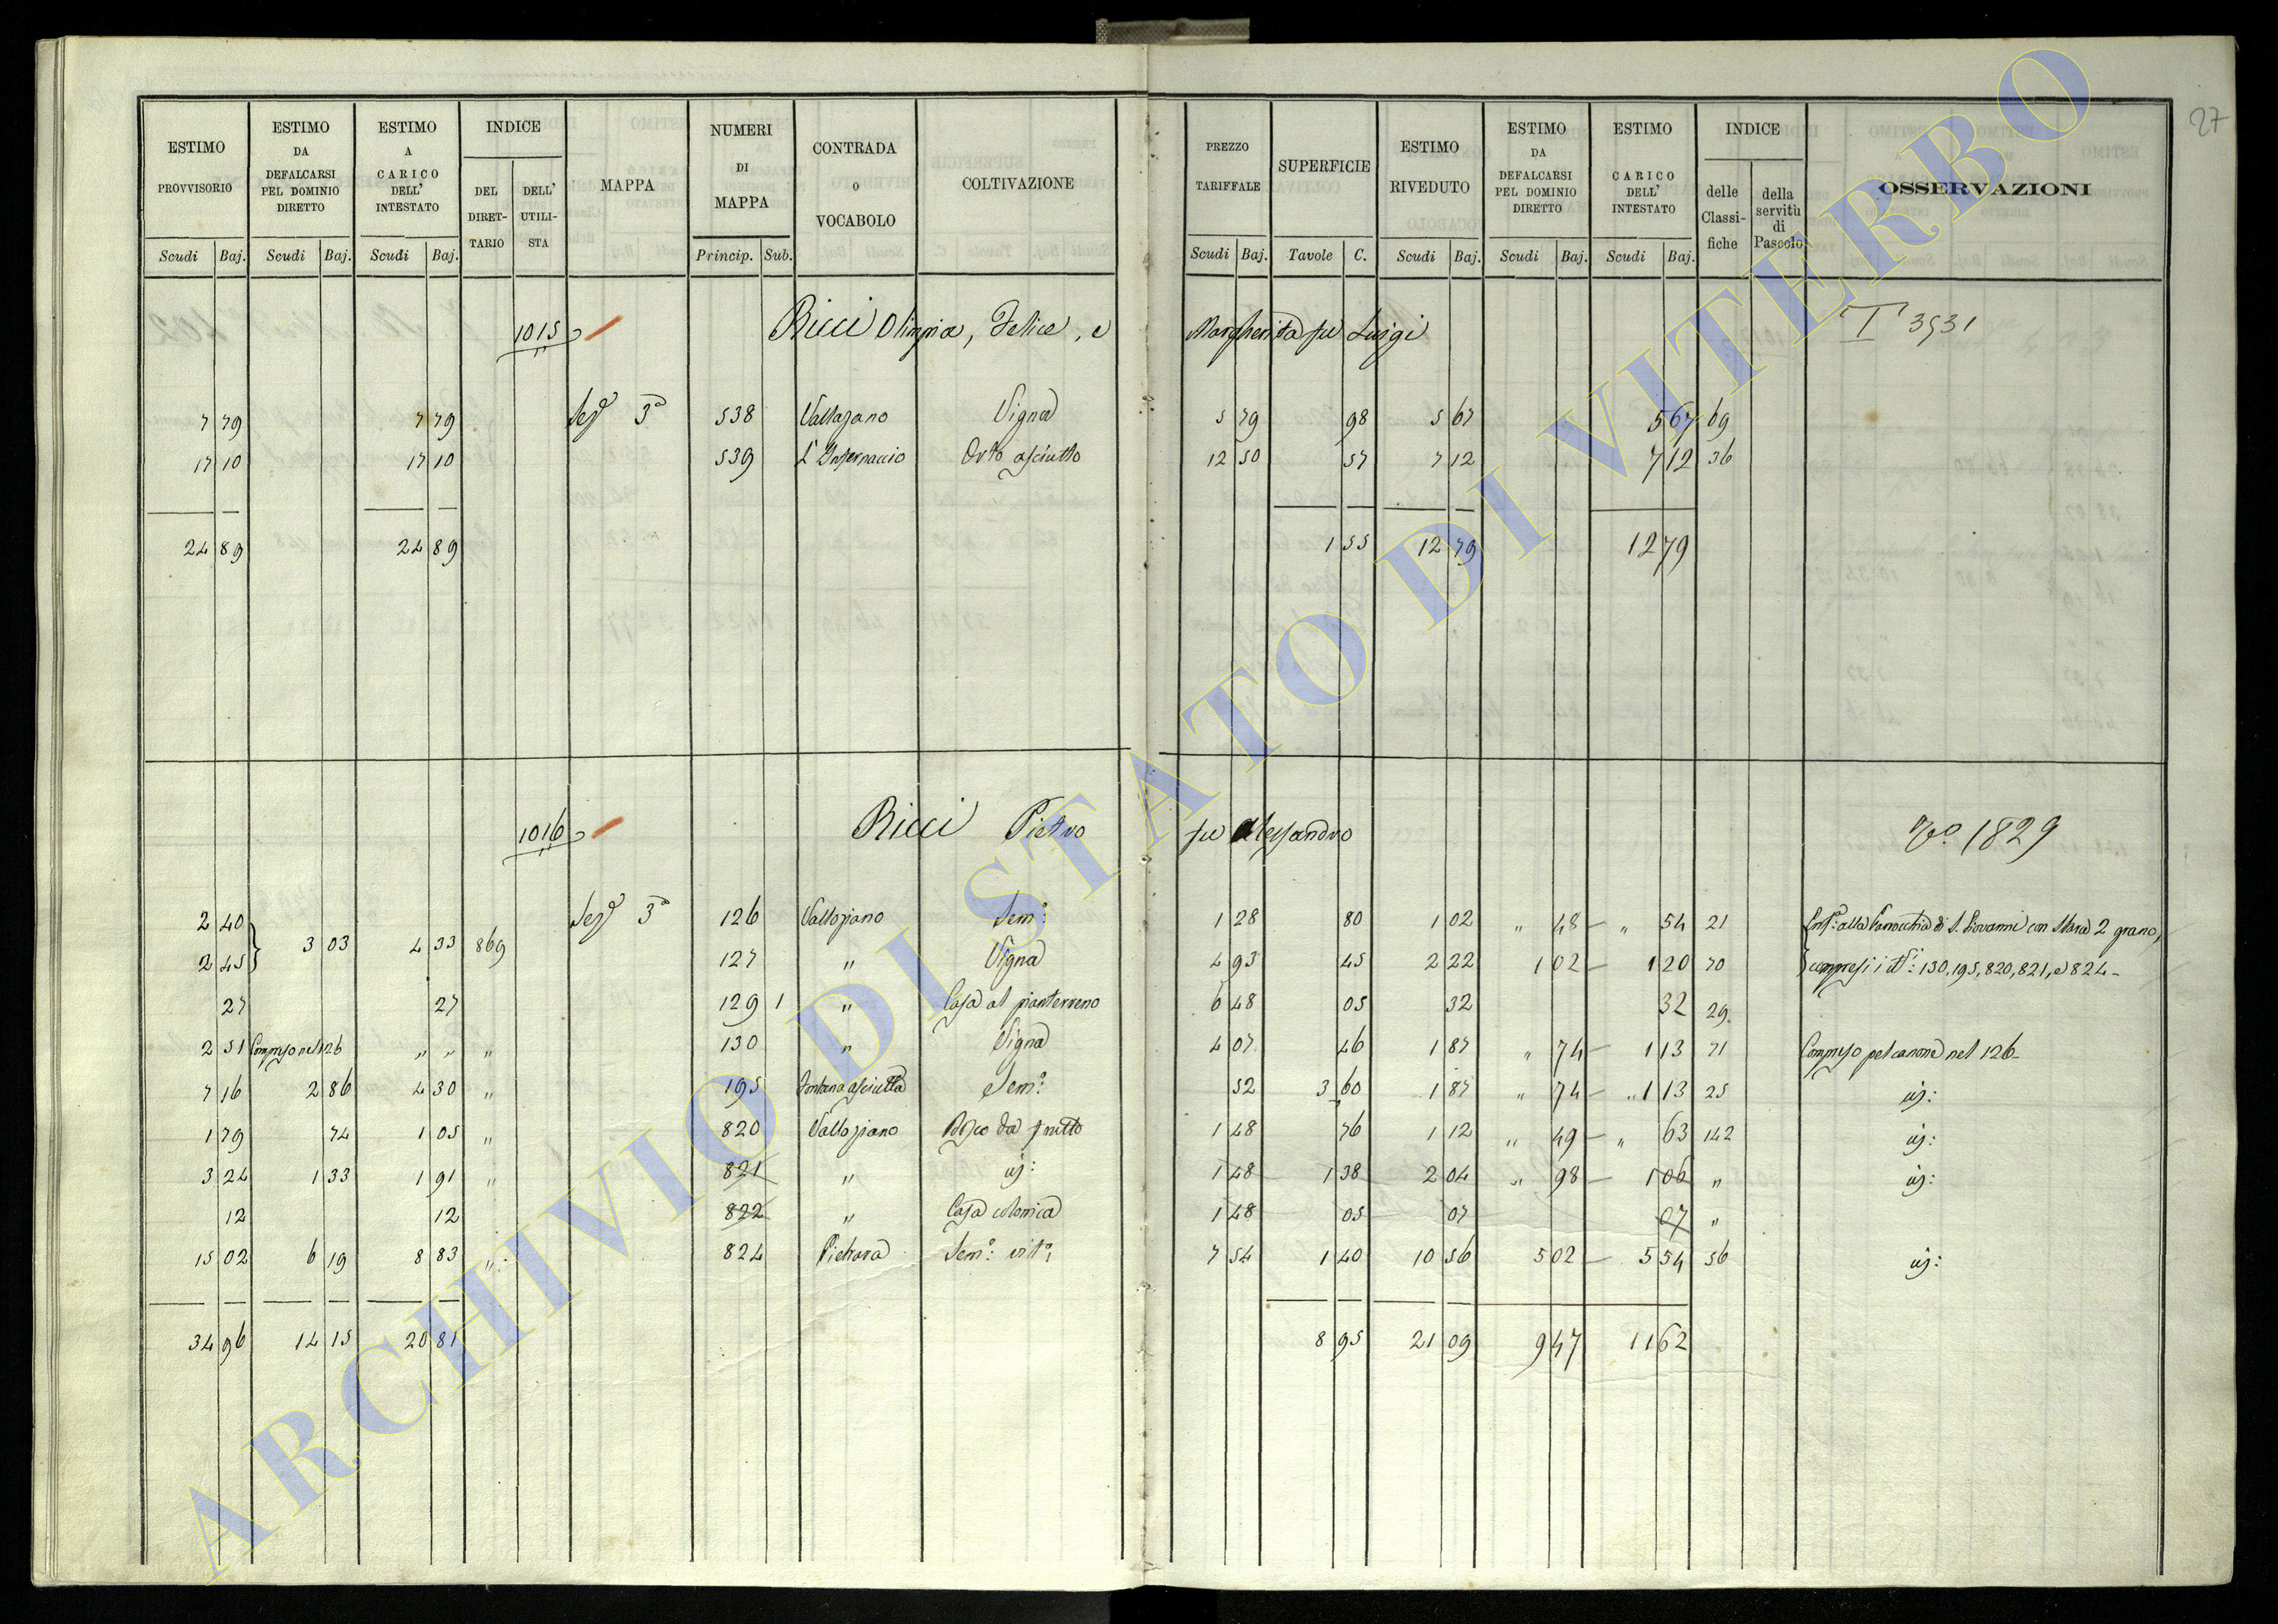 27
ESTIMO PROVVISORIO | ESTIMO DA DEFALCARSI PEL DOMINIO DIRETTO | ESTIMO A CARICO DELL' INTESTATO | INDICE | MAPPA | NUMERI DI MAPPA | CONTRADA O VOCABOLO | COLTIVAZIONE | PREZZO TARIFFALE | SUPERFICIE | ESTIMO RIVEDUTO | ESTIMO DA DEFALCARSI PEL DOMINIO DIRETTO | ESTIMO A CARICO DELL' INTESTATO | INDICE | OSSERVAZIONI
DEL DIRETTARIO | DELL' UTILISTA | delle Classifiche | della servitù di Pascolo
Scudi | Baj. | Scudi | Baj. | Scudi | Baj. | Princip. | Sub. | Scudi | Baj. | Tavole | C. | Scudi | Baj. | Scudi | Baj. | Scudi | Baj.
1015 Ricci Olimpia, Felice, e Margherita fu Luigi T 3531
7 79 | 7 79 | Sezº 3ª | 538 | Vallazano | Vigna | 5 79 | 98 | 5 67 | 5 67 | 69
17 10 | 17 10 | 539 | L'Infernaccio | Orto asciutto | 12 50 | 57 | 7 12 | 7 12 | 36
24 89 | 24 89 | 1 55 | 12 79 | 12 79
1016 Ricci Pietro fu Alessandro 1829
2 40 | 3 03 | 4 33 | 869 | Sezº 3ª | 126 | Sem: | 1 28 | 80 | 1 02 | " 48 | " 54 | 21 | alla Parrocchia di S. Giovanni con Stara 2 grano,
2 45 | 127 | " | Vigna | 4 93 | 45 | 2 22 | 1 02 | 1 20 | 70 | compresi i : 130, 195, 820, 821, e 824
27 | 27 | 129 | 1 | " | Casa al pianterreno | 6 48 | 05 | 32 | 32 | 29
2 51 | Compreso nel 126 | " " | " | 130 | " | Vigna | 4 07 | 46 | 1 87 | " 74 | 1 13 | 71 | Compreso pel canone nel 126
7 16 | 2 86 | 4 30 | " | 195 | Fontana asciutta | Sem: | 52 | 3 60 | 1 87 | " 74 | 1 13 | 25 | id:
1 79 | 74 | 1 05 | " | 820 | Bosco da frutto | 1 48 | 76 | 1 12 | " 49 | " 63 | 142 | id:
3 24 | 1 33 | 1 91 | " | 821 | " | id: | 1 48 | 1 38 | 2 04 | " 98 | 1 06 | " | id:
12 | 12 | 822 | " | Casa colonica | 1 48 | 05 | 07 | 07 | "
15 02 | 6 19 | 8 83 | " | 824 | Pietrara | Sem: vitº: | 7 54 | 1 40 | 10 56 | 5 02 | 5 54 | 56 | id:
34 96 | 14 15 | 20 81 | 8 95 | 21 09 | 9 47 | 11 62
ARCHIVIO DI STATO DI VITERBO